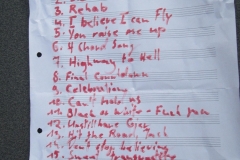 3. Rehab
4. I believe I can Fly
5. You raise me up
6. 4 Chord Song
7. Highway to Hell
8. Final Countdown
9. Celebration
10. Can't hold us
11. Black or White -
12.
13. Hit the Road, Jack
14. Don't stop believing
15.